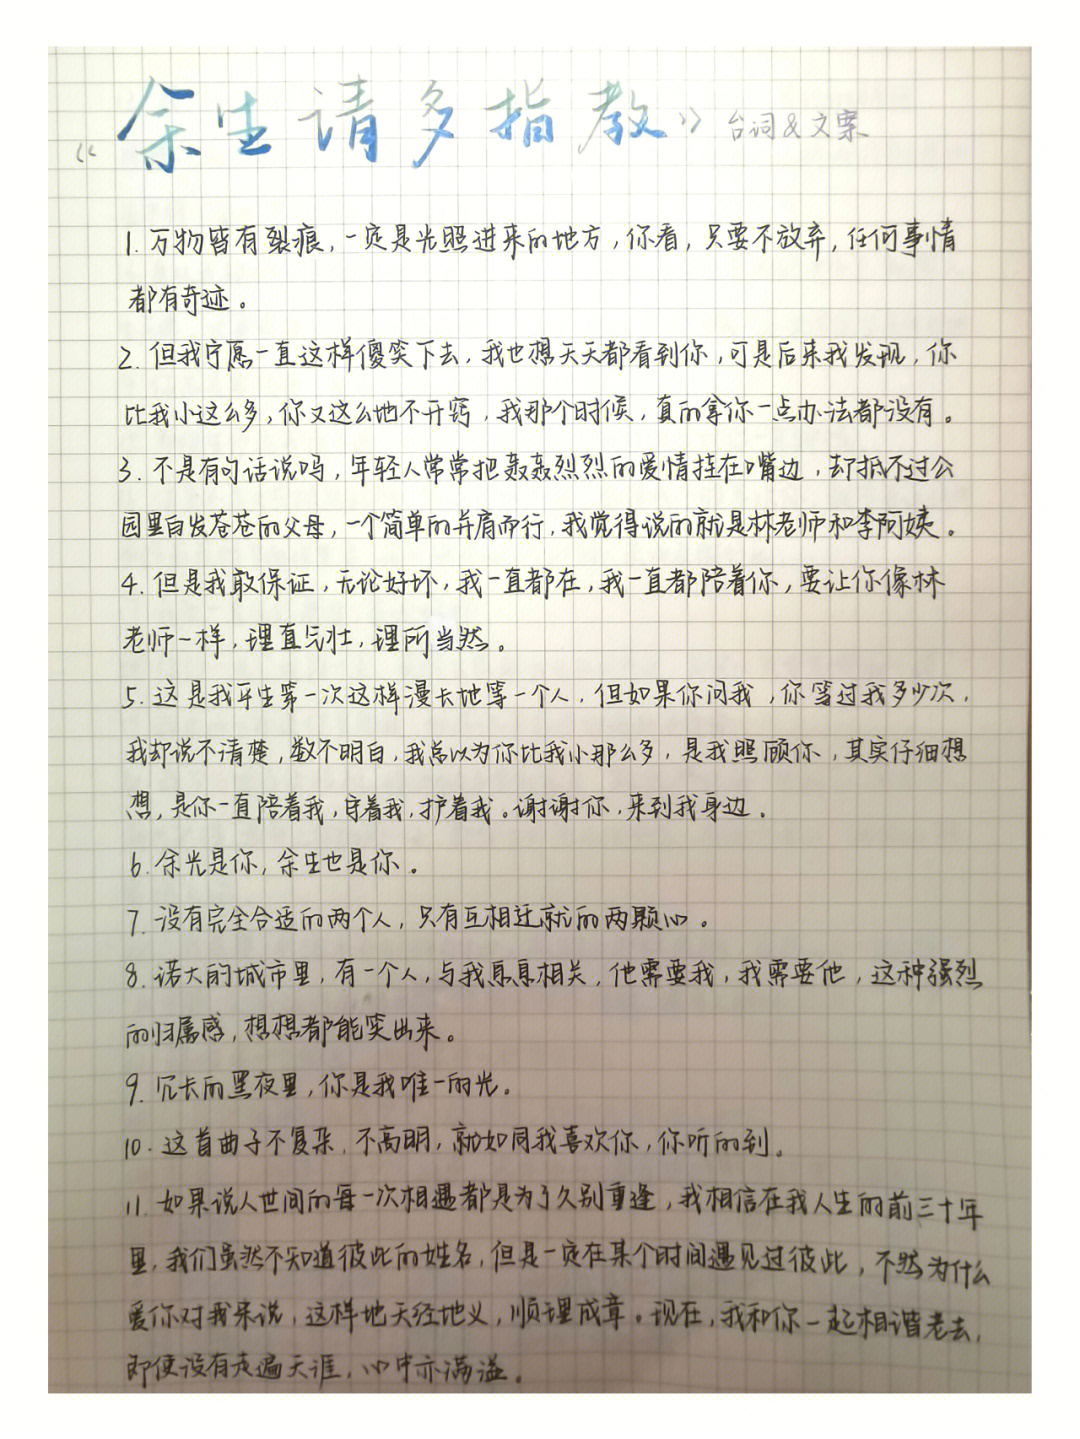 《余生请多指教》台词&文案
1. 万物皆有裂痕，一定是光照进来的地方，你看，只要不放弃，任何事情
都有奇迹。
2. 但我宁愿一直这样傻笑下去，我也想天天都看到你，可是后来我发现，你
比我小这么多，你又这么地不开窍，我那个时候，真的拿你一点办法都没有。
3. 不是有句话说吗，年轻人常常把轰轰烈烈的爱情挂在嘴边，却抵不过公
园里白发苍苍的父母，一个简单的并肩而行，我觉得说的就是林老师和李阿姨。
4. 但是我敢保证，无论好坏，我一直都在，我一直都陪着你，要让你像林
老师一样，理直气壮，理所当然。
5. 这是我平生第一次这样漫长地等一个人，但如果你问我，你等过我多少次，
我却说不清楚，数不明白，我总以为你比我小那么多，是我照顾你，其实仔细想
想，是你一直陪着我，守着我，护着我。谢谢你，来到我身边。
6. 余光是你，余生也是你。
7. 没有完全合适的两个人，只有互相迁就的两颗心。
8. 诺大的城市里，有一个人，与我息息相关，他需要我，我需要他，这种强烈
的归属感，想想都能笑出来。
9. 冗长的黑夜里，你是我唯一的光。
10. 这首曲子不复杂，不高明，就如同我喜欢你，你听的到。
11. 如果说人世间的每一次相遇都是为了久别重逢，我相信在我人生的前三十年
里，我们虽然不知道彼此的姓名，但是一定在某个时间遇见过彼此，不然为什么
爱你对我来说，这样地天经地义，顺理成章。现在，我和你一起相谐老去，
即使没有走遍天涯，心中亦满溢。